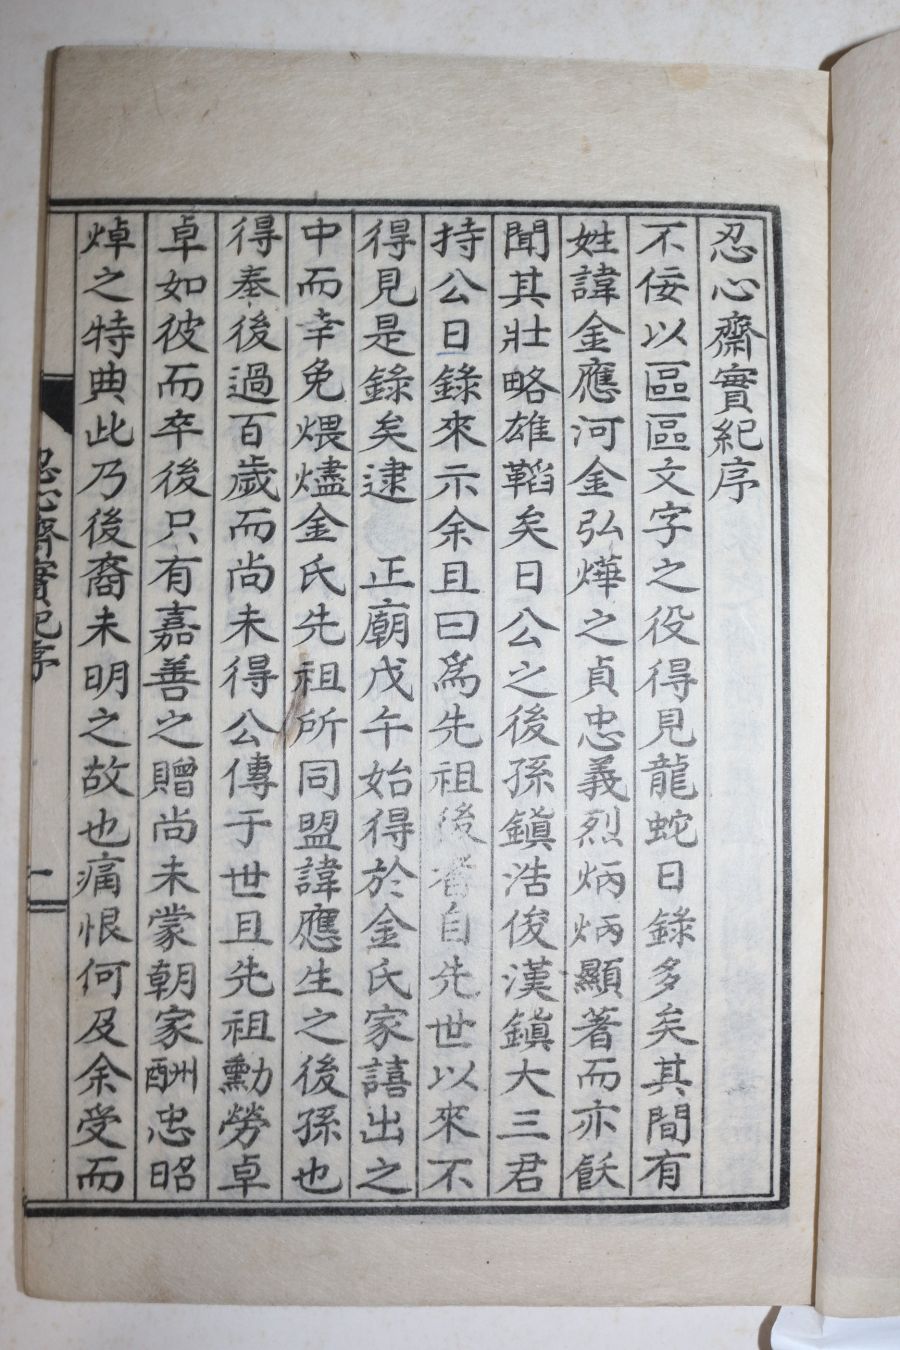 忍心齋實紀序
不佞以區區文字之役得見龍蛇日錄多矣其間有
姓諱金應河金弘燁之貞忠義烈炳炳顯著而亦飫
聞其壯略雄韜矣日公之後孫鎭浩俊漢鎭大三君
持公日錄來示余且曰爲先祖後裔自先世以來不
得見是錄矣逮 正廟戊午始得於金氏家譆出之
中而幸免煨燼金氏先祖所同盟諱應生之後孫也
得奉後過百歲而尚未得公傳于世且先祖勳勞卓
卓如彼而卒後只有嘉善之贈尚未蒙朝家酬忠昭
焯之特典此乃後裔未明之故也痛恨何及余受而
忍心齋實紀序
一